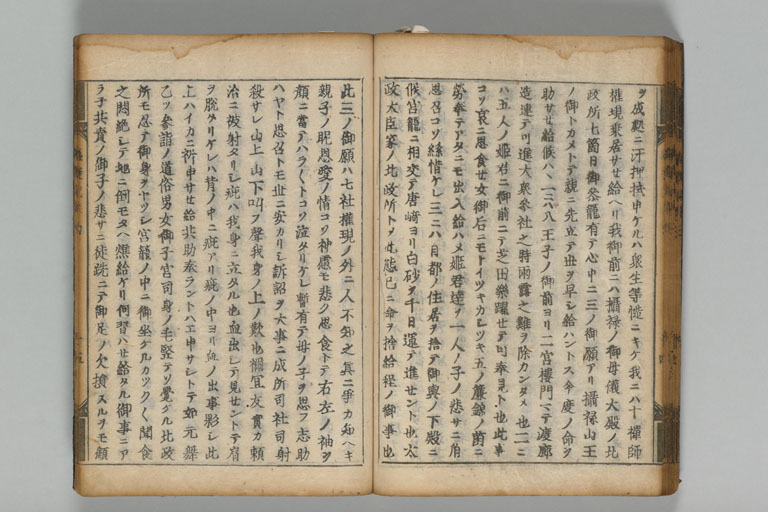 ヲ成懇ニ汗押拭申ケルハ衆生等慥ニキケ我ニハ十禪師
權現乗居サセ給ヘリ我御前ニハ攝禄ノ御母儀大殿ノ北
政所七箇日御参籠有テ心中ニ三ノ御願アリ攝禄山王
ノ御トカメトテ親ニ先立テ世ヲ早シ給ハントス今度ノ命ヲ
助サセ給候ハヽ一ニハ八王子ノ御前ヨリ二宮樓門マテ廻廊
造連テ進大衆参社之時雨露之難ヲ除カンタメ也二ニ
ハ五人ノ姫君ニ御前ニテ芝田樂躍セテ可奉見ト也此事
コソ哀ニ思食セ女御后ニモトイツキカシツキ五ノ簾錦ノ茵ニ
勞奉テアタニモ出入給ハヌ姫君達ヲ一人ノ子ノ悲サニ角
思召コソ絲惜ケレ三ニハ月都ノ住居ヲ捨テ御輿ノ下殿ニ
候宮籠ニ相交テ唐崎ヨリ白砂ヲ千日運テ進セント也太
政大臣家ノ北政所トシテ此態ニ命ヲ捨給程ノ御事也
此三ノ御願ハ七社權現ノ外ニ人不知之其ニ争カ知ヘキ
親子ノ眤恩愛ノ情コソ神慮モ悲ク思食トテ右左ノ袖ヲ
顔ニ當テハラ〱トコソ泣タリケレ暫有テ母ノ子ヲ思フ志助
ハヤト思召トモ世ニ安カリシ訴詔ヲ大事ニ成所司社司射
殺サレ山上山下叫フ聲我身ノ上ノ歎也禰冝友實カ頼
治ニ被射タリシ疵ハ我身ニ立タル也血出シテ見セントテ肩
ヲ脱タリケレハ背ノ中ニ疵アリ疵ノ中ヨリ血ノ出事影シ此
上ハイカニ祈申サセ給共助奉ラントハエ申サシトテ如元舞
乙ツ参詣ノ道俗男女御子宮司身ノ毛竪テソ覺ケル北政
所モ忍テ御身ヲヤツシ宮籠ノ中ニ御坐ケルカツク〱聞食
之悶絶シテ地ニ倒モタヘ焦給ケリ何習ハセ給タル御事ニテ
ラ子共貴ノ御子ノ悲サニ徒跣ニテ御足ノ欠損スルヲモ顧